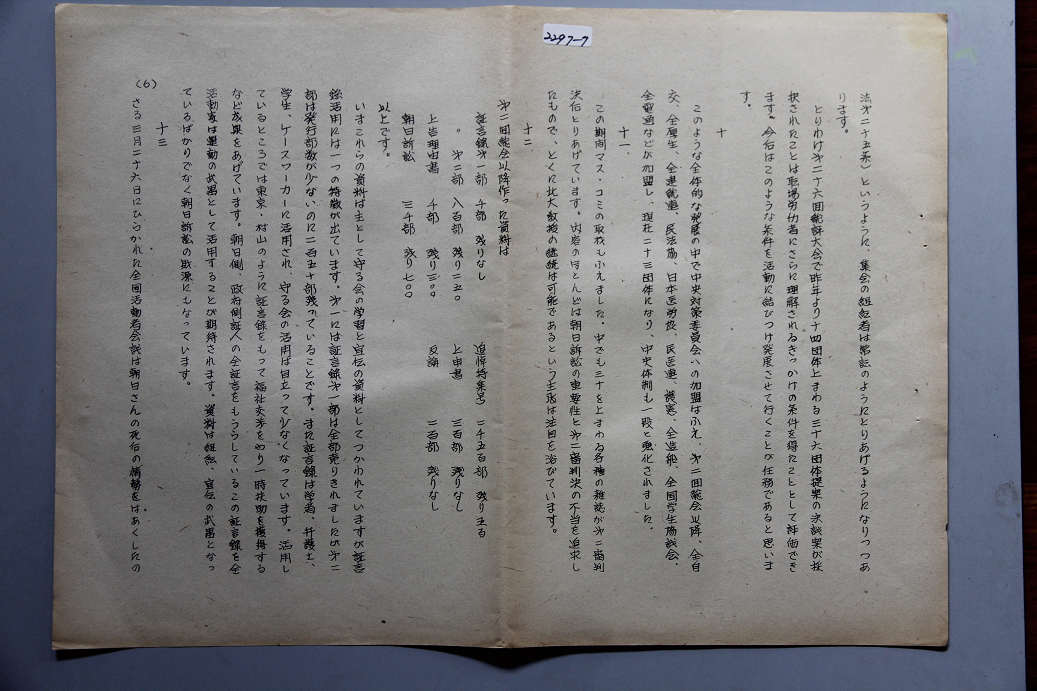 2297-7
法第二十五条)というように、集会の組織者は常識のようにとりあげるようになりつつあ
ります。
とりわけ第二十六回総評大会で昨年より十四団体上まわる三十六団体提案の決議案が採
択されたことは職場労働者にさらに理解されるきっかけの条件を得たこととして評価でき
ます。今后はこのような条件を活動に結びつけ発展させて行くことが任務であると思いま
す。
十
このような全体的な発展の中で中央対策委員会への加盟はふえ、第二回総会以降、全自
交、全厚生、全建総連、民法協、日本医労協、民医連、総寮、全造船、全国学生協議会、
全電通などが加盟し、現在二十三団体になり、中央体制も一段と強化されました。
十一
この期間マス・コミの取材もふえました。中でも三十を上まわる各種の雑誌が第二審判
決后とりあげています。内容のほとんどは朝日訴訟の重要性と第二審判決の不当を追求し
たもので、とくに北大教授の継続は可能であるという主張は注目を浴びています。
十二
第二回総会以降作った資料は
証言録第一部 千部 残りなし 追悼特集号 二千五百部 残り五〇
〃 第二部 八百部 残り二五〇 上申書 三百部 残りなし
上告理由書 千部 残り三〇〇 反論 二百部 残りなし
朝日訴訟 三千部 残り七〇〇
以上です。
いまこれらの資料は主として守る会の学習と宣伝の資料としてつかわれていますが証言
録活用には一つの特徴が出ています。第一には証言録第一部は全部売りきれましたが第二
部は発行部数が少ないのに二百五十部残っていることです。また証言録は学者、弁護士、
学生、ケースワーカーに活用され、守る会の活用は目立って少なくなっています。活用し
ているところでは東京・村山のように証言録をもって福祉交渉をやり一時扶助を獲得する
など成果をあげています。朝日側、政府側証人の全証言をもうらしているこの証言録を全
活動家は運動の武器として活用することが期待されます。資料は組織、宣伝の武器となっ
ているばかりでなく朝日訴訟の財源にもなっています。
十三
さる三月二十六日にひらかれた全国活動者会議は朝日さんの死后の情勢をはあくしたの
(6)